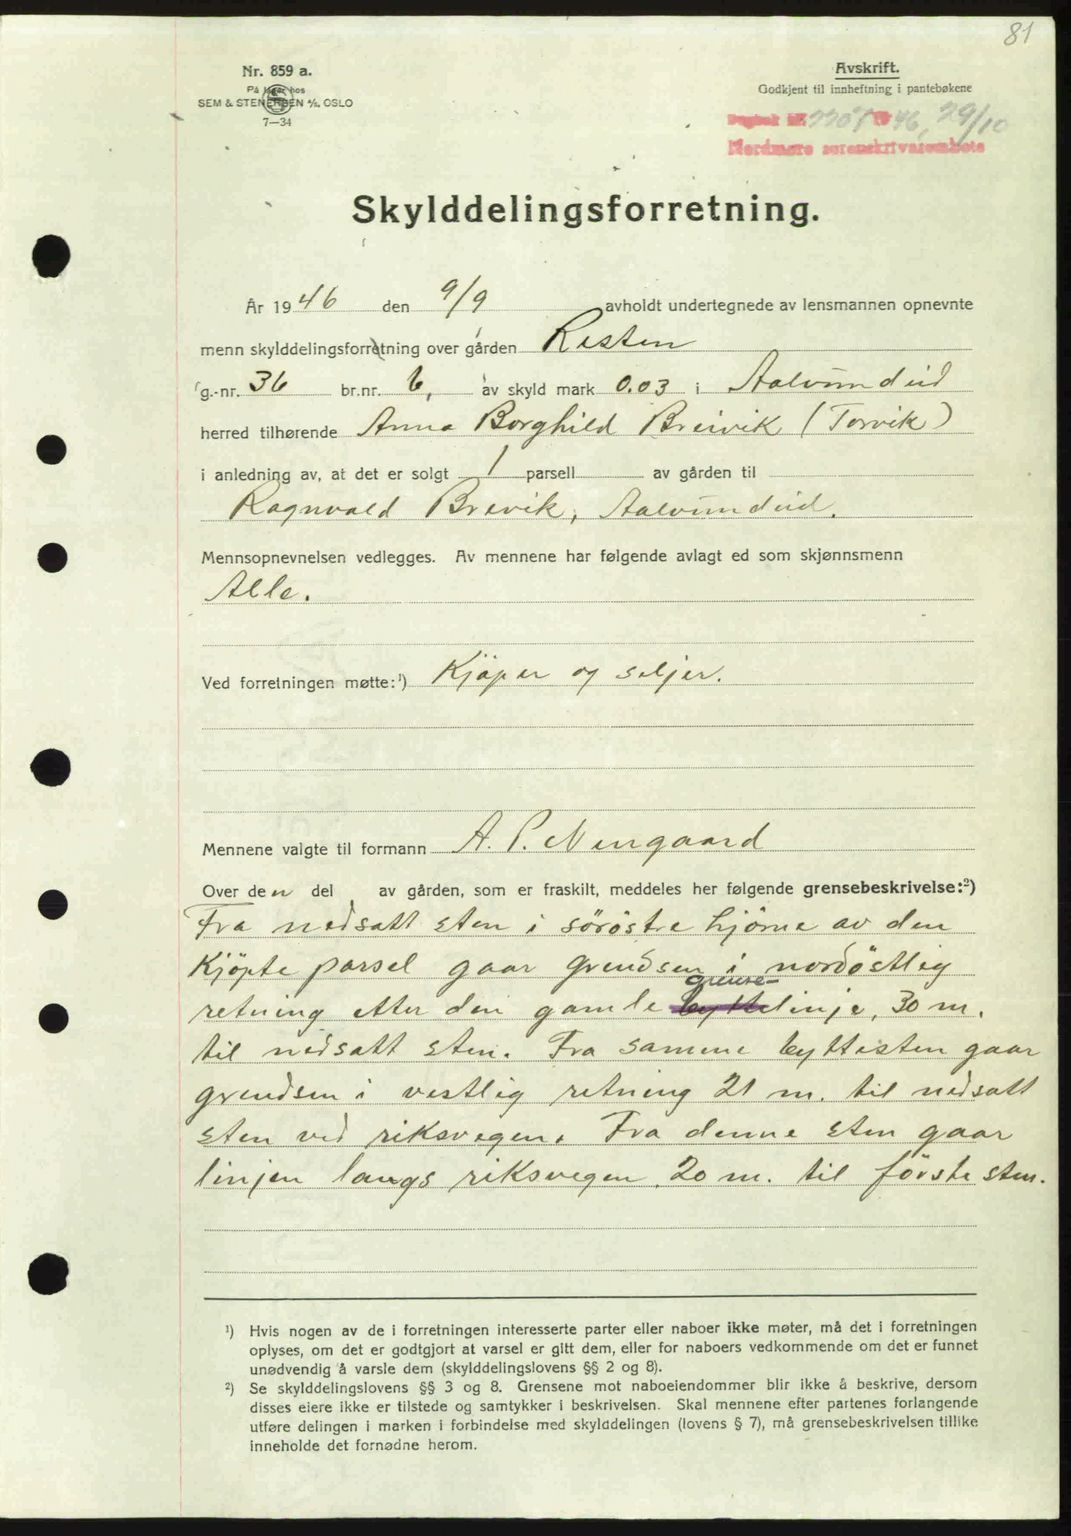 81
Nr. 859 a.
På lager hos
SEM & STENERSEN A/S, OSLO
7—34
Avskrift.
Godkjent til innheftning i pantebøkene
Dagbok nr. 2207 1946, 29/10
Nordmøre sorenskriverembete
Skylddelingsforretning.
År 1946 den 9/9 avholdt undertegnede av lensmannen opnevnte
menn skylddelingsforretning over gården Resten
g.-nr. 36 br.nr. 6, av skyld mark 0.03 i Aalvundeid
herred tilhørende Anna Borghild Breivik (Torvik)
i anledning av, at det er solgt 1 parsell av gården til
Ragnvald Brevik, Aalvundeid.
Mennsopnevnelsen vedlegges. Av mennene har følgende avlagt ed som skjønnsmenn
Alle.
Ved forretningen møtte:¹) Kjöper og seljer.
Mennene valgte til formann A. P. Neergaard
Over den del av gården, som er fraskilt, meddeles her følgende grensebeskrivelse:²)
Fra nedsatt sten i söröstre hjörne av den
kjöpte parsel gaar grendsen i nordöstlig
grense-
retning etter den gamle byttelinje, 30 m.
til nedsatt sten. Fra samme byttesten gaar
grendsen i vestlig retning 21 m. til nedsatt
sten ved riksvegen. Fra denne sten gaar
linjen langs riksvegen 20 m. til förste sten.
¹) Hvis nogen av de i forretningen interesserte parter eller naboer ikke møter, må det i forretningen
oplyses, om det er godtgjort at varsel er gitt dem, eller for naboers vedkommende om det er funnet
unødvendig å varsle dem (skylddelingslovens §§ 2 og 8).
²) Se skylddelingslovens §§ 3 og 8. Grensene mot naboeiendommer blir ikke å beskrive, dersom
disses eiere ikke er tilstede og samtykker i beskrivelsen. Skal mennene efter partenes forlangende
utføre delingen i marken i forbindelse med skylddelingen (lovens § 7), må grensebeskrivelsen tillike
inneholde det fornødne herom.